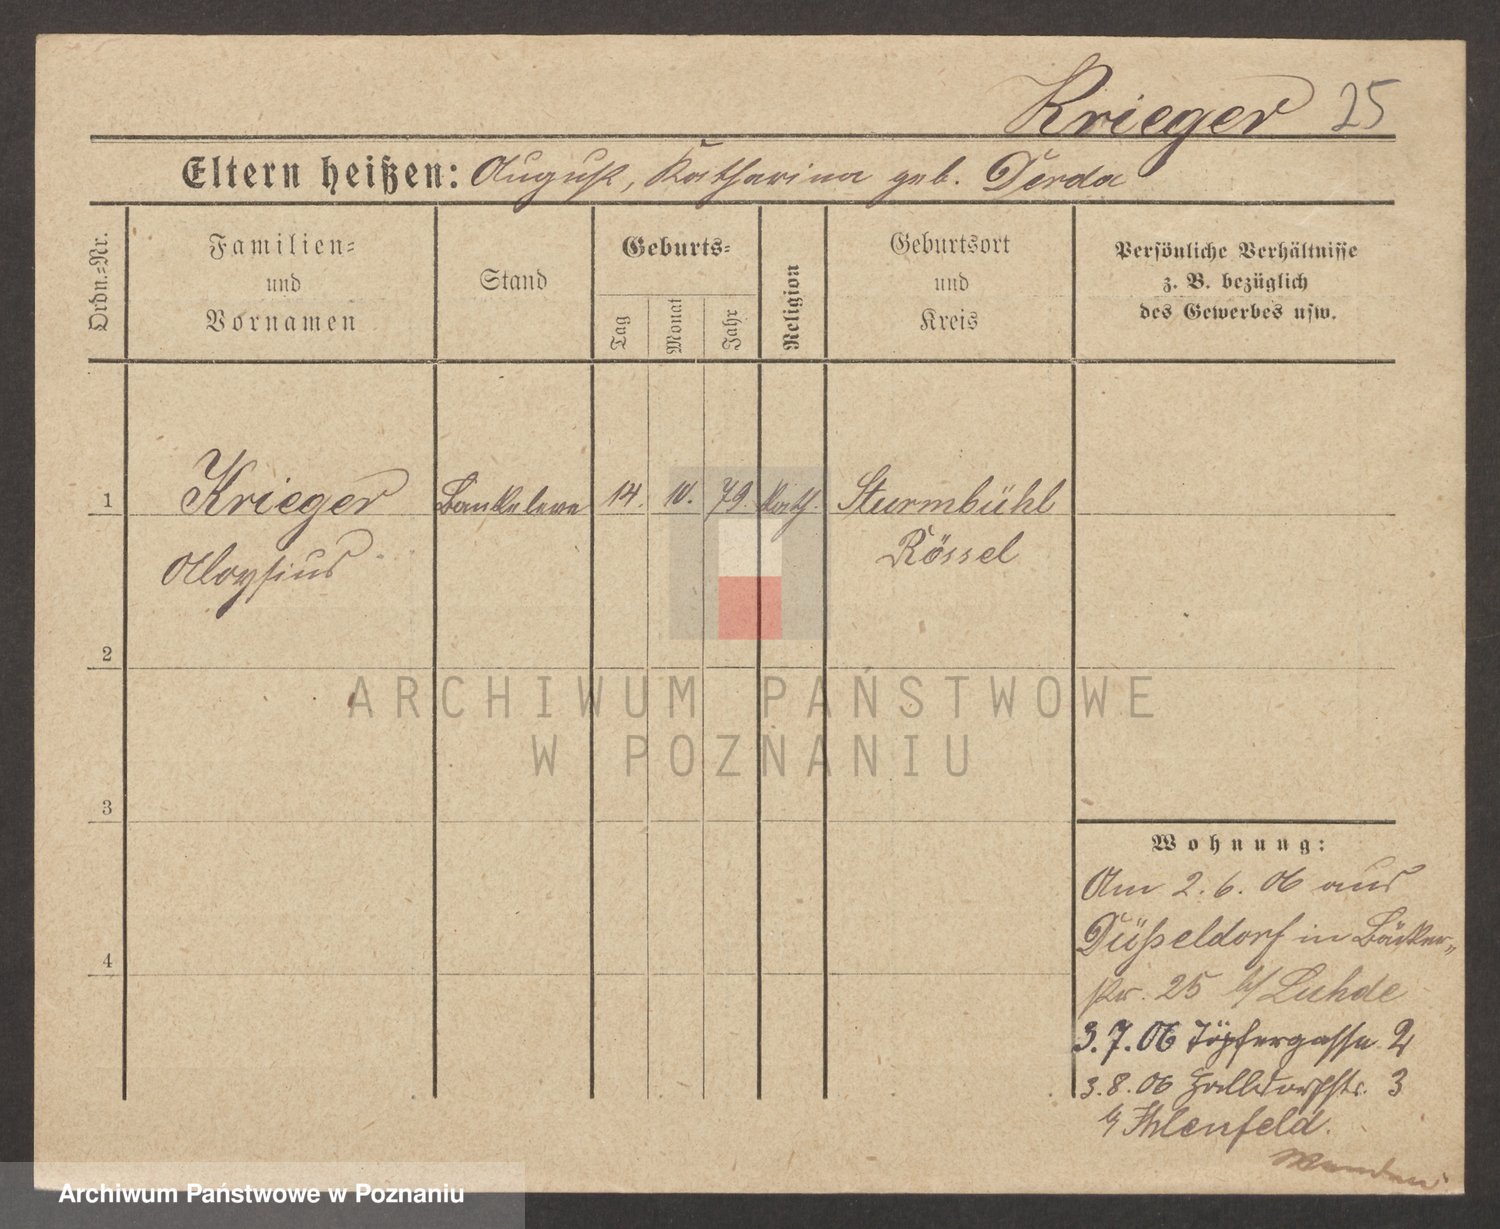 Krieger 25
Eltern heißen: August, Katharina geb. Derda
Ordn.=Nr.
Familien=
und
Vornamen
Stand
Geburts=
Tag
Monat
Jahr
Religion
Geburtsort
und
Kreis
Persönliche Verhältnisse
z. B. bezüglich
des Gewerbes usw.
1 Krieger Bankeleve 14. 10. 79. kath. Sturmbühl
Aloysius Rössel
2
ARCHIWUM PAŃSTWOWE
W POZNANIU
3
Wohnung:
Am 2. 6. 06 aus
Düsseldorf in Bäcker=
4
str. 25 b/ Luhde
3.7.06 Töpfergasse 2
3.8.06 Halldorfstr. 3
b/ Ihlenfeld.
Wenden
Archiwum Państwowe w Poznaniu